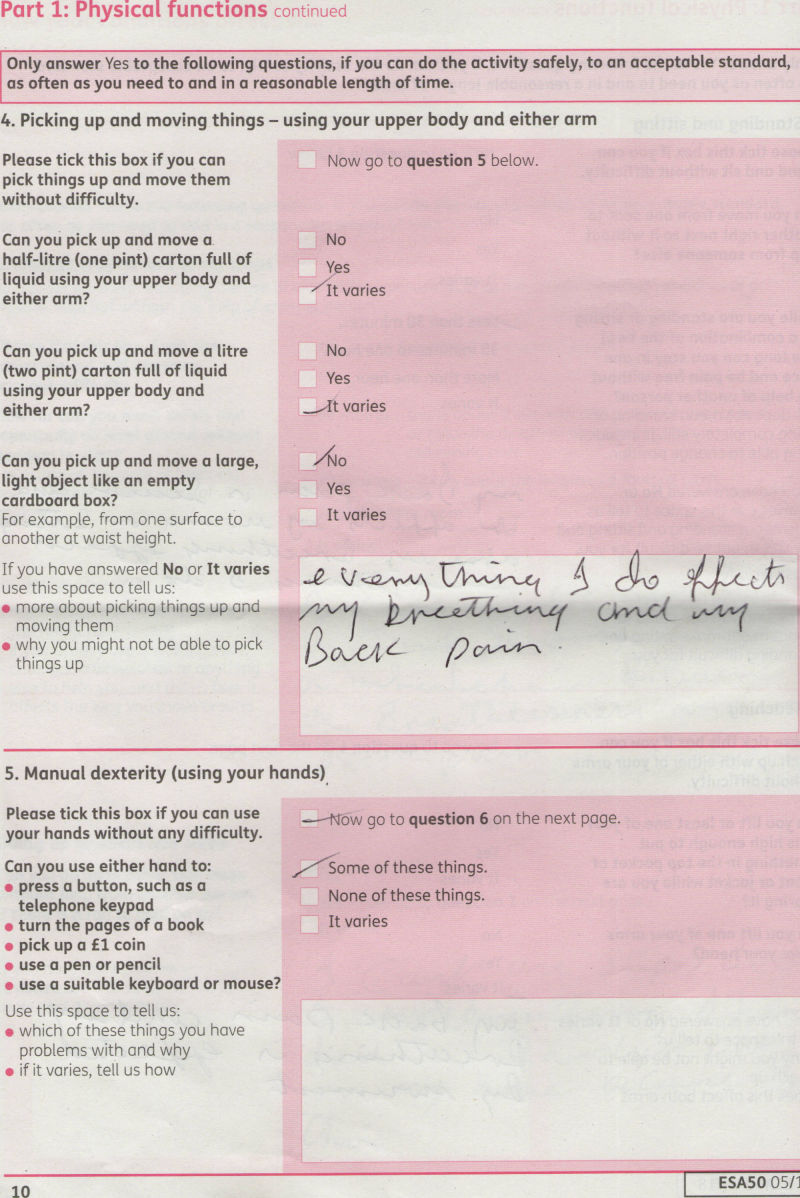 Part 1: Physical functions continued
Only answer Yes to the following questions, if you can do the activity safely, to an acceptable standard,
as often as you need to and in a reasonable length of time.
4. Picking up and moving things – using your upper body and either arm
Please tick this box if you can
pick things up and move them
without difficulty.
Now go to question 5 below.
Can you pick up and move a
half-litre (one pint) carton full of
liquid using your upper body and
either arm?
No
Yes
It varies
Can you pick up and move a litre
(two pint) carton full of liquid
using your upper body and
either arm?
No
Yes
It varies
Can you pick up and move a large,
light object like an empty
cardboard box?
For example, from one surface to
another at waist height.
No
Yes
It varies
If you have answered No or It varies
use this space to tell us:
• more about picking things up and
moving them
• why you might not be able to pick
things up
everything I do effects
my breething and my
Back pain.
5. Manual dexterity (using your hands)
Please tick this box if you can use
your hands without any difficulty.
Now go to question 6 on the next page.
Can you use either hand to:
• press a button, such as a
telephone keypad
• turn the pages of a book
• pick up a £1 coin
• use a pen or pencil
• use a suitable keyboard or mouse?
Some of these things.
None of these things.
It varies
Use this space to tell us:
• which of these things you have
problems with and why
• if it varies, tell us how
10
ESA50 05/1